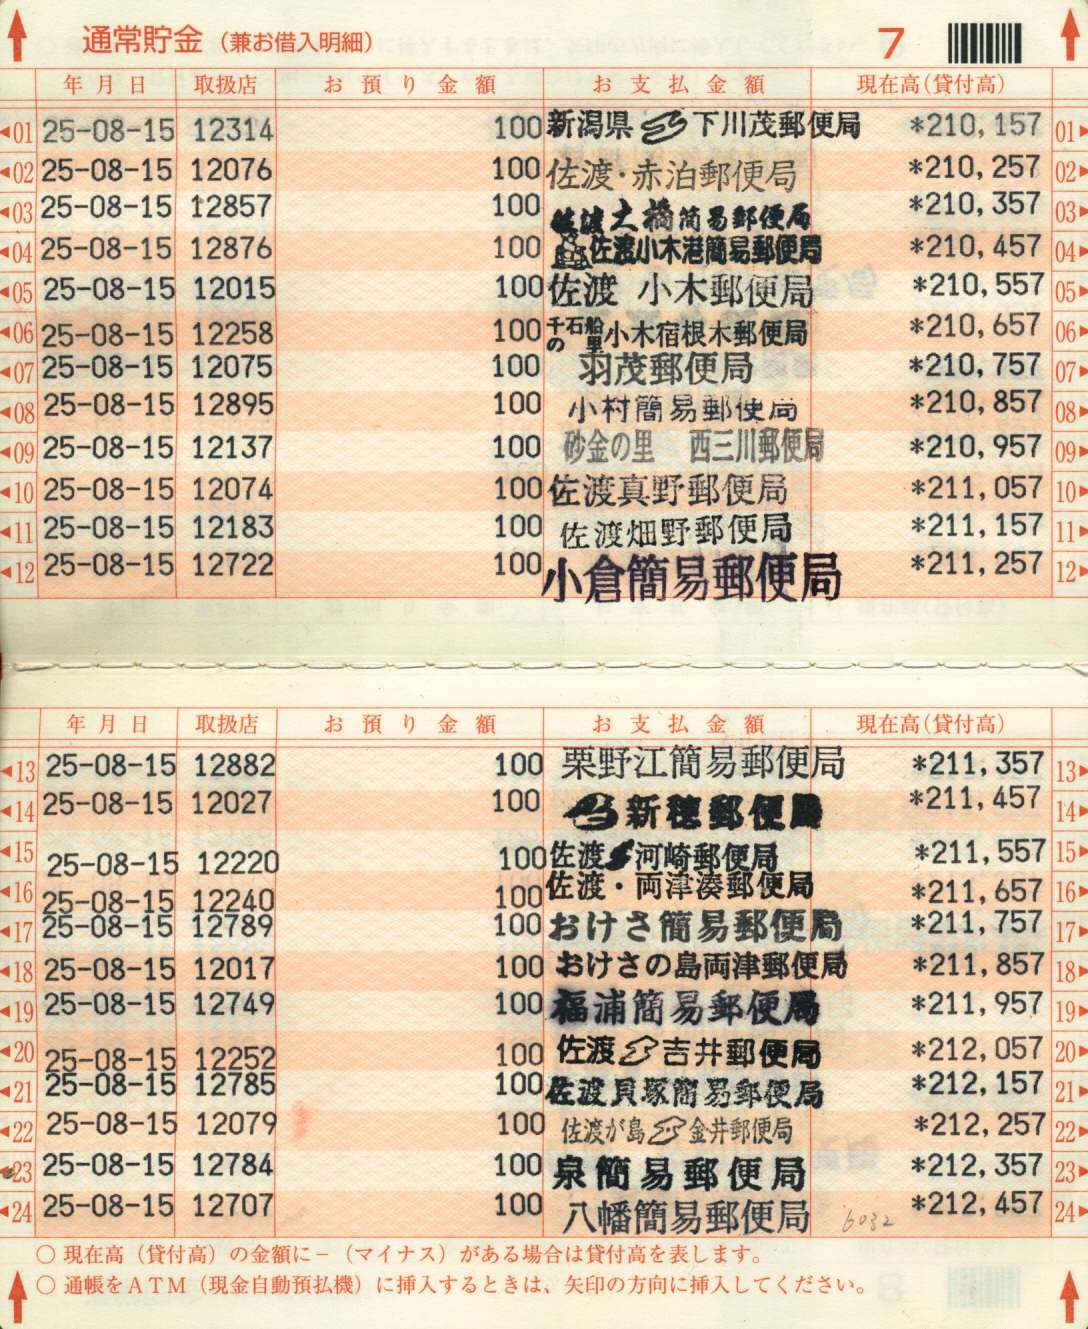 通常貯金（兼お借入明細） 7
年月日 取扱店 お預り金額 お支払金額 現在高(貸付高)
01 25-08-15 12314 100 新潟県 下川茂郵便局 *210,157 01
02 25-08-15 12076 100 佐渡・赤泊郵便局 *210,257 02
03 25-08-15 12857 100 佐渡大橋簡易郵便局 *210,357 03
04 25-08-15 12876 100 佐渡小木港簡易郵便局 *210,457 04
05 25-08-15 12015 100 佐渡 小木郵便局 *210,557 05
06 25-08-15 12258 100 千石船の里 小木宿根木郵便局 *210,657 06
07 25-08-15 12075 100 羽茂郵便局 *210,757 07
08 25-08-15 12895 100 小村簡易郵便局 *210,857 08
09 25-08-15 12137 100 砂金の里 西三川郵便局 *210,957 09
10 25-08-15 12074 100 佐渡真野郵便局 *211,057 10
11 25-08-15 12183 100 佐渡畑野郵便局 *211,157 11
12 25-08-15 12722 100 小倉簡易郵便局 *211,257 12
年月日 取扱店 お預り金額 お支払金額 現在高(貸付高)
13 25-08-15 12882 100 栗野江簡易郵便局 *211,357 13
14 25-08-15 12027 100 新穂郵便局 *211,457 14
15 25-08-15 12220 100 佐渡 河崎郵便局 *211,557 15
16 25-08-15 12240 100 佐渡・両津湊郵便局 *211,657 16
17 25-08-15 12789 100 おけさ簡易郵便局 *211,757 17
18 25-08-15 12017 100 おけさの島両津郵便局 *211,857 18
19 25-08-15 12749 100 福浦簡易郵便局 *211,957 19
20 25-08-15 12252 100 佐渡 吉井郵便局 *212,057 20
21 25-08-15 12785 100 佐渡貝塚簡易郵便局 *212,157 21
22 25-08-15 12079 100 佐渡が島 金井郵便局 *212,257 22
23 25-08-15 12784 100 泉簡易郵便局 *212,357 23
24 25-08-15 12707 100 八幡簡易郵便局 6032 *212,457 24
○ 現在高（貸付高）の金額に－（マイナス）がある場合は貸付高を表します。
○ 通帳をＡＴＭ（現金自動預払機）に挿入するときは、矢印の方向に挿入してください。